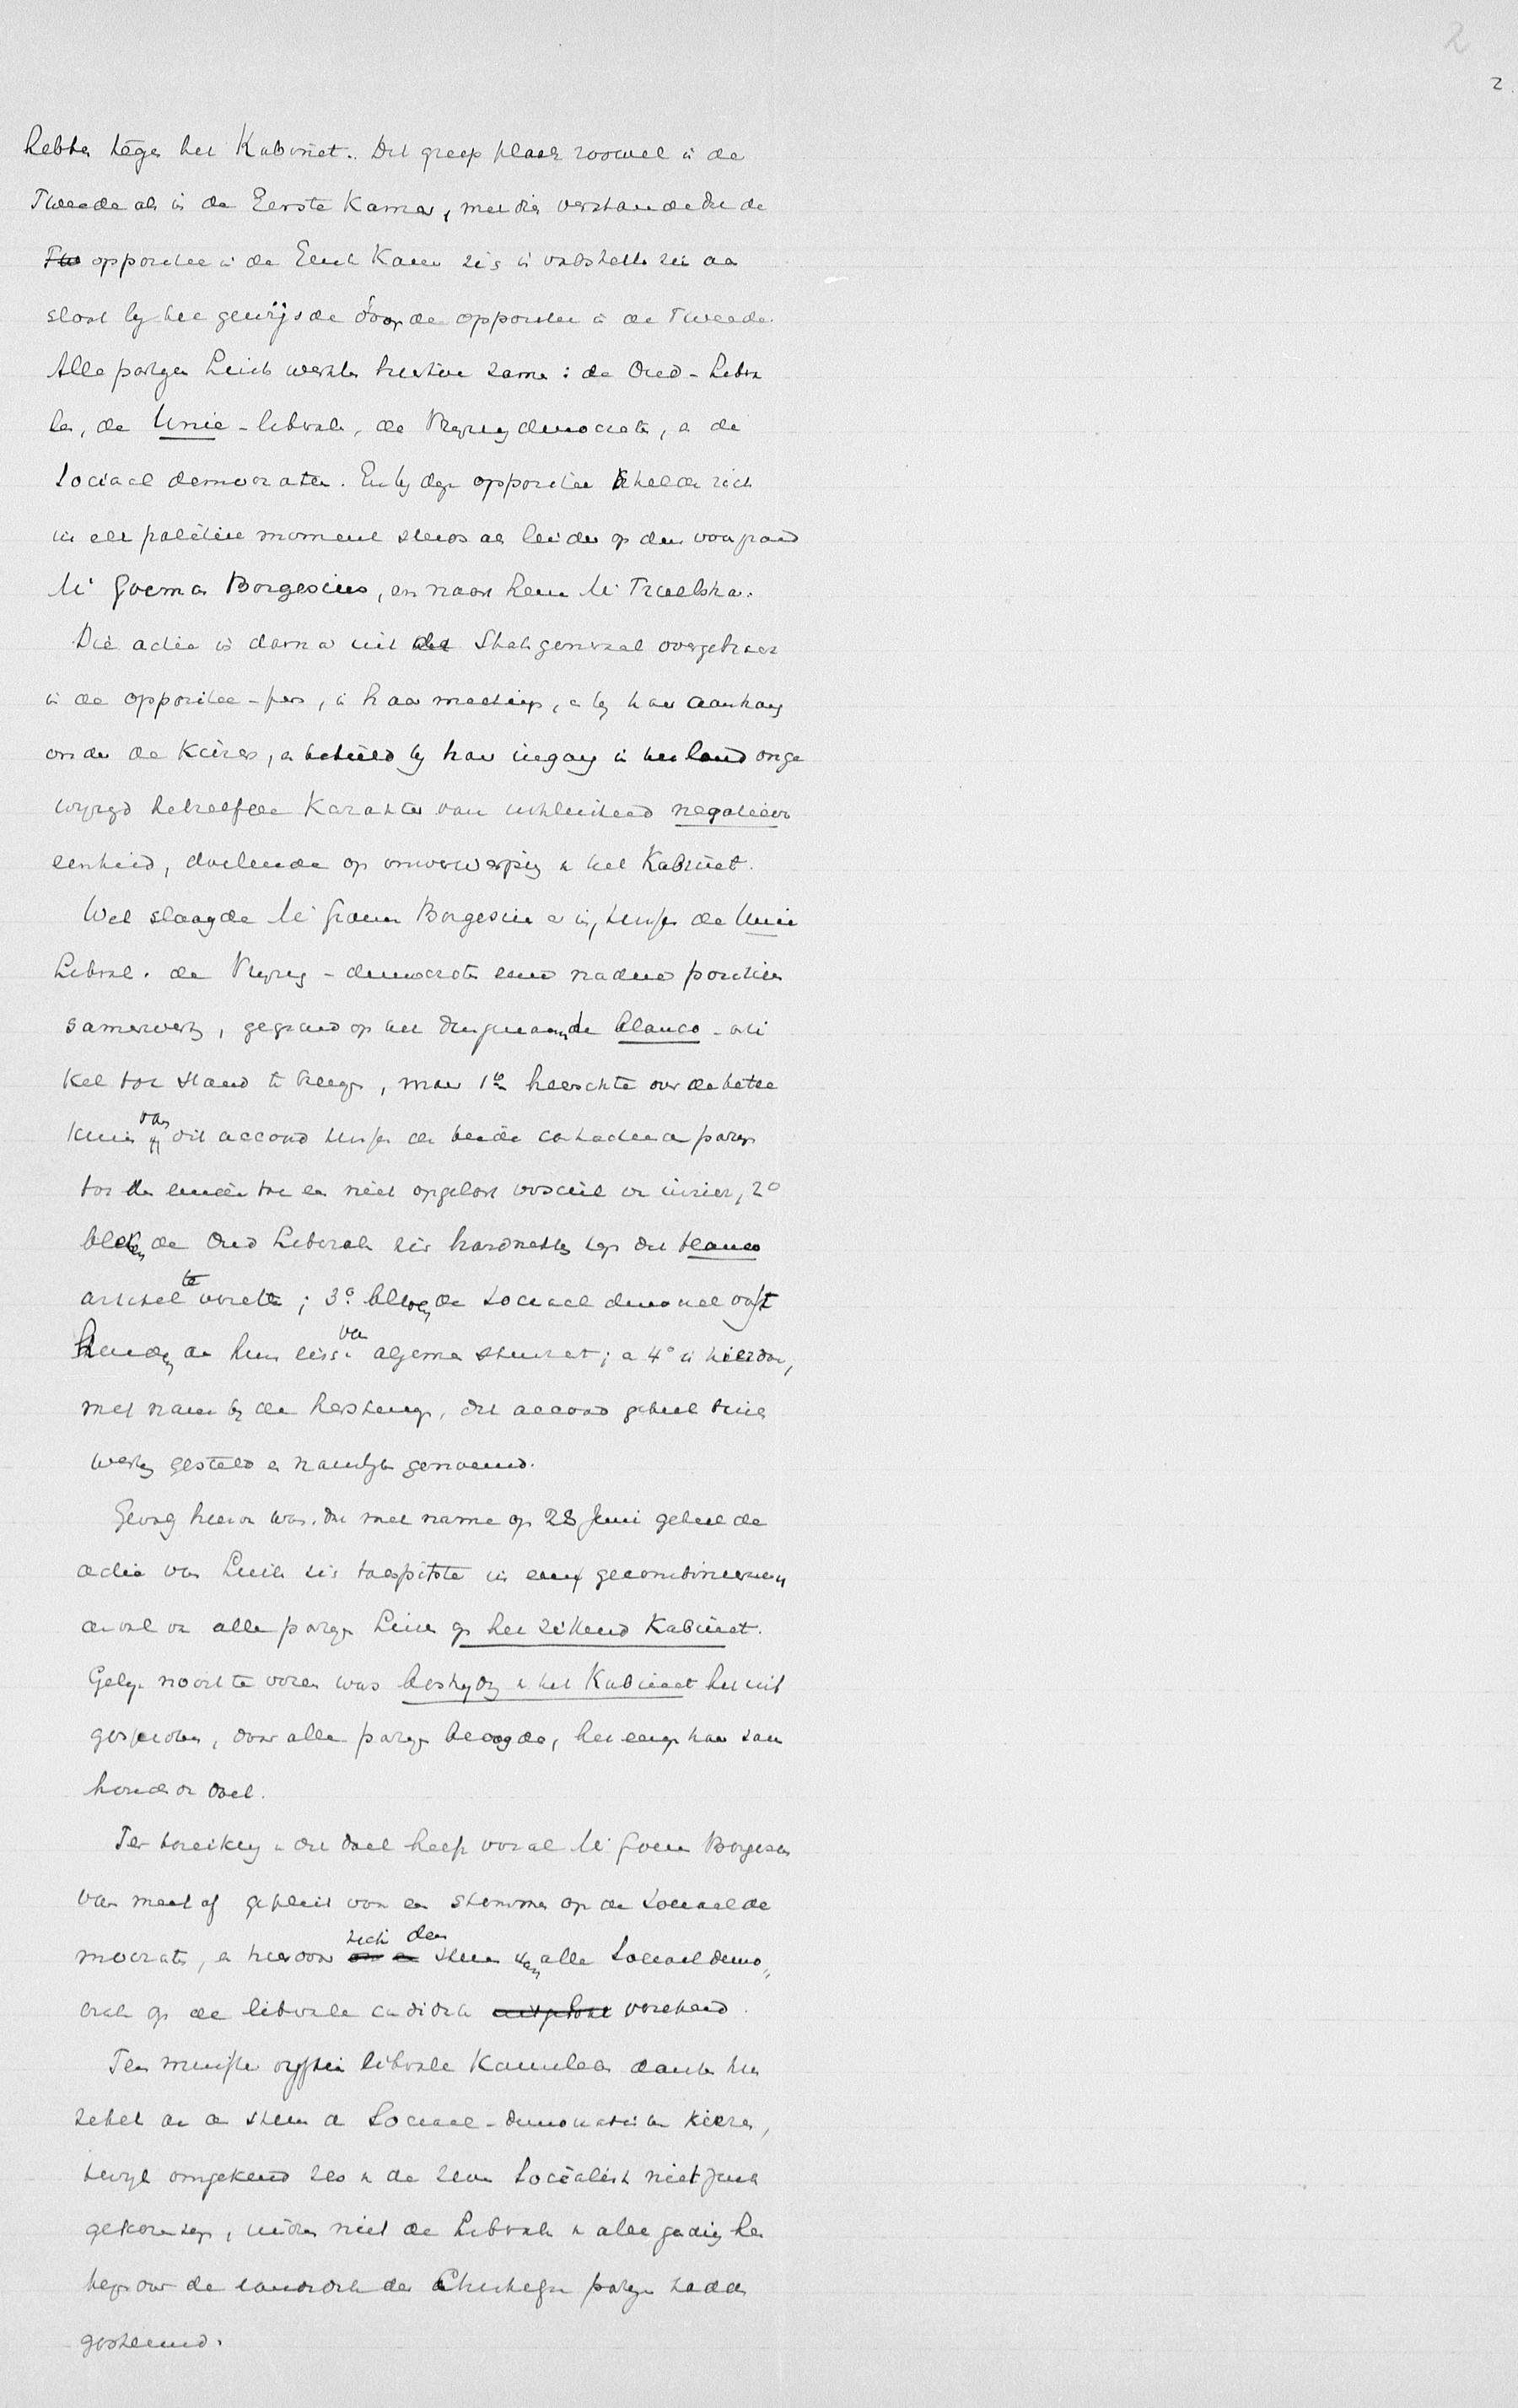 2
2.
hebben tegen het Kabinet. Dit greep plaats zoowel in de
Tweede als in de Eerste Kamer, met dien verstande dat de
oppositie in de Eerste Kamer zich in volstrekten zin aan
sloot bij het gewijsde door de oppositie in de Tweede.
Alle partijen Links werkten hiertoe samen: de Oud-Libera
len, de Unie-liberalen, de Vrijzinnig democraten, en de
Sociaal democraten. En bij deze oppositie stelde zich
in elk politiek moment steeds als leider op den voorgrond
Mr Goeman Borgesius, en naast hem Mr Troelstra.
Die actie is daarna uit de Staten generaal overgebracht
in de oppositie-pers, in haar meetings, en bij haar aanhang
onder de Kiezers, en behield bij haar ingang in het land onge
wijzigd hetzelfde Karakter van uitsluitend negatieve
eenheid, doelende op omverwerping van het Kabinet.
Wel slaagde Mr Goeman Borgesius er in, tusschen de Unie
Liberalen en de Vrijzinnig-democraten eene nadere positieve
samenwerking, gegrond op het dusgenaamde blanco-arti
kel tot stand te brengen, maar 1o heerschte over de betee
kenis van dit accoord tusschen de beide contracteerende partijen
tot den einde toe een niet opgelost verschil van inzien, 2o
bleken de Oud Liberalen zich hardnekkig tegen dit blanco
artikel te verzetten; 3o bleven de Sociaal democraten vast
houden aan hun eisch van algemeen stemrecht; en 4o is hierdoor,
met name bij de herstemmingen, dit accoord geheel buiten
werking gesteld en nauwelijks genoemd.
Gevolg hiervan was, dat met name op 28 Juni geheel de
actie van Links zich toespitste in een gecombineerden
aanval van alle partijen Links op het zittend Kabinet.
Gelijk nooit te voren was bestrijding van het Kabinet het uit
gesproken, door alle partijen beoogde, het eenig haar samen
houdende doel.
Ter bereiking van dit doel heeft vooral Mr Goeman Borgesius
van meet af gepleit voor een stemmen op de Sociaal de
mocraten, en hiervoor zich den steun van alle Sociaal demo„
craten op de liberale candidaten verzekerd.
Ten minste vijftien liberale Kamerleden danken hun
zetel aan den steun van Sociaal-democratische kiezers,
terwijl omgekeerd zes van de zeven Socialisten niet zouden
gekozen zijn, indien niet de Liberalen van alle gading hen
tegenover de candidaten der Christelijke partijen hadden
gesteund.